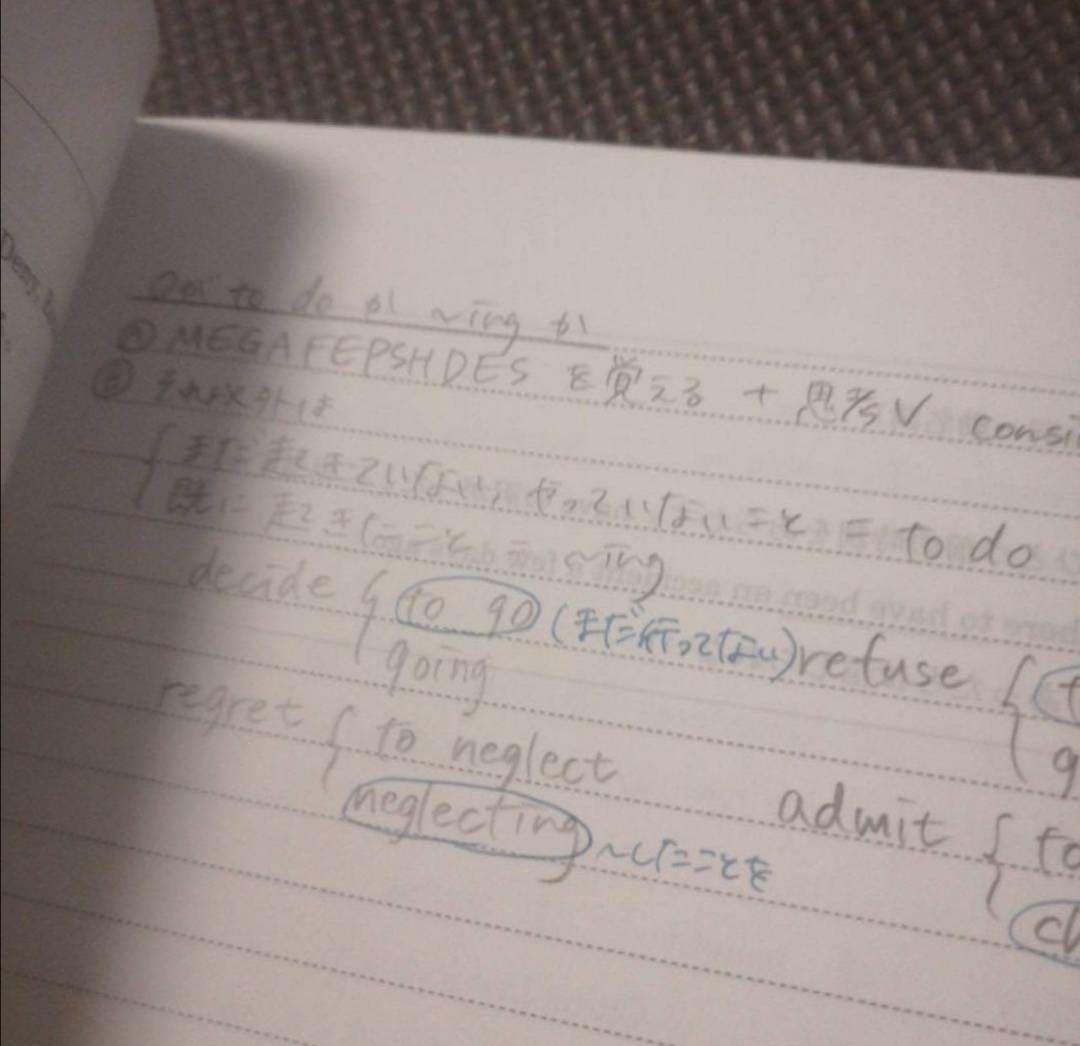 to do か ~ing か
① MEGAFEPSHDES を覚える + 思考V consi
② それ以外は
まだ起きていない, やっていないこと = to do
既に起きたこと = ~ing
decide { to go (まだ行ってない) refuse { t
going g
regret { to neglect admit { to
neglecting ~したことを ch